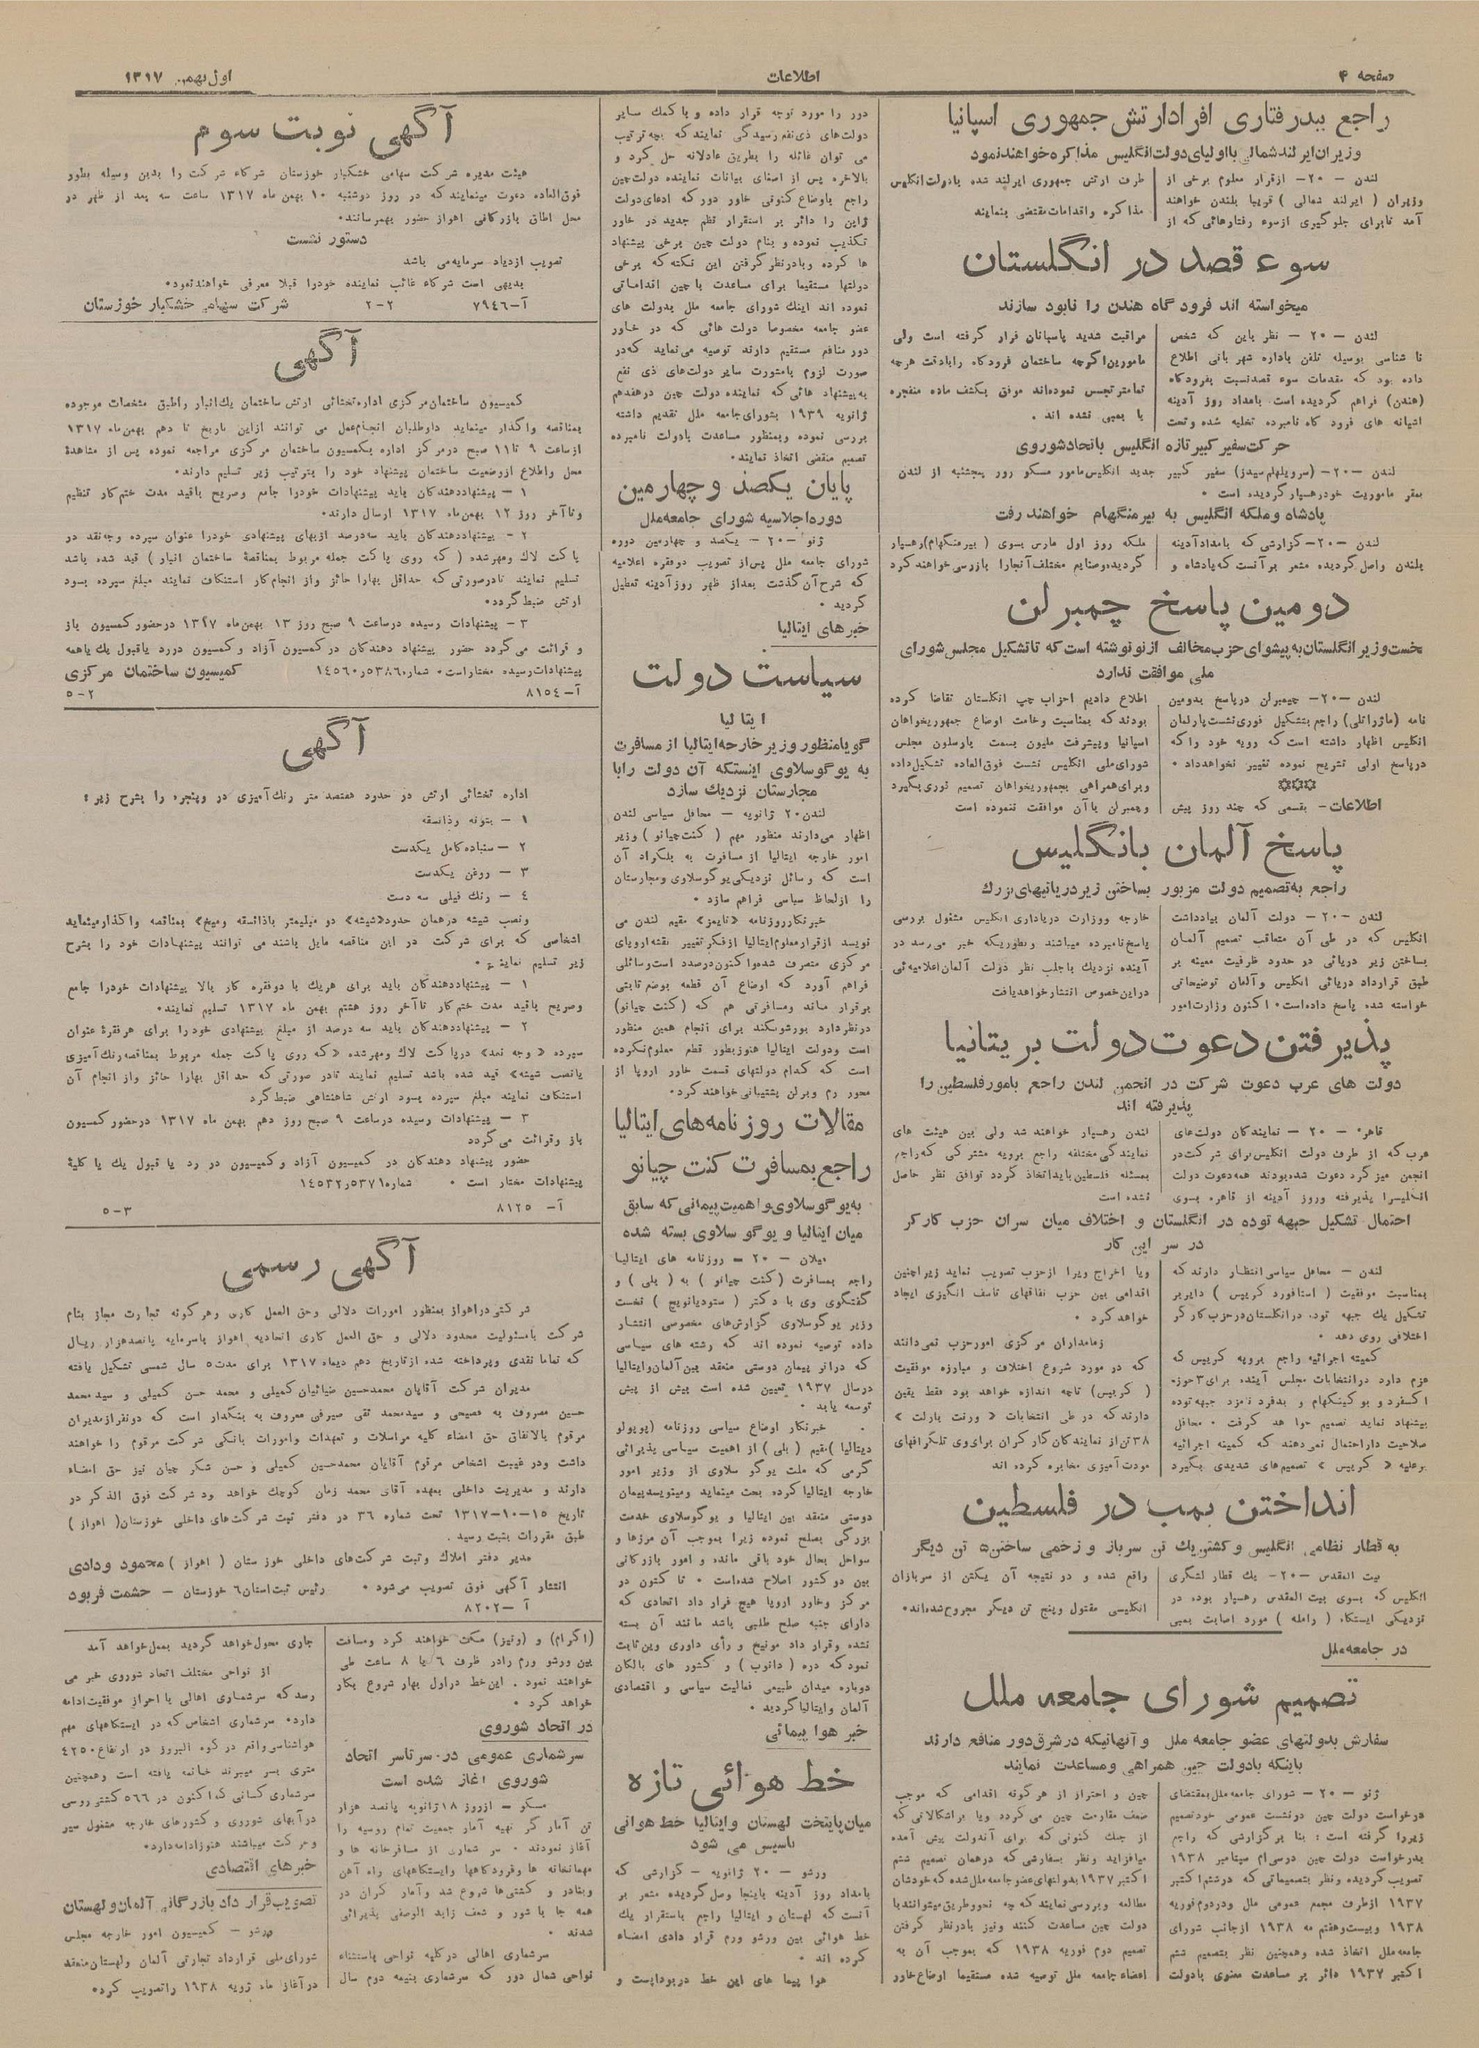 صفحه ۴
اطلاعات
اول بهمن ۱۳۱۷
راجع ببدرفتاری افرادارتش جمهوری اسپانیا
وزیران ایرلند شمالی با اولیای دولت انگلیس مذاکره خواهند نمود
لندن – ۲۰– ازقرار معلوم برخی از
وزیران ( ایرلند شمالی ) قریبا بلندن خواهند
آمد تا برای جلوگیری ازسوء رفتارهائی که از
طرف ارتش جمهوری ایرلند شده با دولت انگلیس
مذاکره و اقدامات مقتضی بنمایند
سوء قصد در انگلستان
میخواسته اند فرود گاه هندن را نابود سازند
لندن – ۲۰ – نظر باین که شخص
نا شناسی بوسیله تلفن باداره شهر بانی اطلاع
داده بود که مقدمات سوء قصد نسبت بفرودگاه
(هندن) فراهم گردیده است بامداد روز آدینه
آشیانه های فرود گاه نامبرده تخلیه شده و تحت
مراقبت شدید پاسبانان قرار گرفته است ولی
مامورین اگرچه ساختمان فرودگاه را بادقت هرچه
تمامتر تجسس نموده‌اند موفق بکشف ماده منفجره
یا بمبی نشده اند .
حرکت سفیر کبیر تازه انگلیس باتحاد شوروی
لندن –۲۰– (سرویلهلم سیدز) سفیر کبیر جدید انگلیس مامور مسکو روز پنجشنبه از لندن
بمقر ماموریت خود رهسپار گردیده است •
پادشاه وملکه انگلیس به بیرمنگهام خواهند رفت
لندن –۲۰– گزارشی که بامداد آدینه
بلندن واصل گردیده مشعر برآنست که پادشاه و
ملکه روز اول مارس بسوی ( بیرمنگهام) رهسپار
گردیده و صنایع مختلف آنجا را بازرسی خواهند کرد
دومین پاسخ چمبرلن
نخست وزیر انگلستان به پیشوای حزب مخالف از نو نوشته است که با تشکیل مجلس شورای
ملی موافقت ندارد
لندن –۲۰– چیمبرلن درپاسخ بدومین
نامه (ماژراتلی) راجع بتشکیل فوری نشست پارلمان
انگلیس اظهار داشته است که رویه خود را که
در پاسخ اولی تشریح نموده تغییر نخواهد داد •
***
اطلاعات– بقسمی که چند روز پیش
اطلاع دادیم احزاب چپ انگلستان تقاضا کرده
بودند که بمناسبت وخامت اوضاع جمهوریخواهان
اسپانیا و پیشرفت ملیون بسمت بارسلون مجلس
شورای ملی انگلیس نشست فوق العاده تشکیل داده
و برای همراهی بجمهوریخواهان تصمیم فوری بگیرد
و چمبرلن با آن موافقت ننموده است
پاسخ آلمان بانگلیس
راجع به تصمیم دولت مزبور بساختن زیردریائیهای بزرگ
لندن –۲۰– دولت آلمان بیادداشت
انگلیس که در طی آن متعاقب تصمیم آلمان
بساختن زیر دریائی در حدود ظرفیت معینه بر
طبق قرارداد دریائی انگلیس و آلمان توضیحاتی
خواسته شده پاسخ داده است• اکنون وزارت امور
خارجه و وزارت دریاداری انگلیس مشغول بررسی
پاسخ نامبرده میباشند و بطوریکه خبر می رسد در
آینده نزدیک با جلب نظر دولت آلمان اعلامیه‌ئی
در این خصوص انتشار خواهد یافت
پذیرفتن دعوت دولت بریتانیا
دولت های عرب دعوت شرکت در انجمن لندن راجع بامور فلسطین را
پذیرفته اند
قاهره – ۲۰ – نمایندگان دولت‌های
عرب که از طرف دولت انگلیس برای شرکت در
انجمن میز گرد دعوت شده بودند همه دعوت دولت
انگلیس را پذیرفته و روز آدینه از قاهره بسوی
لندن رهسپار خواهند شد ولی بین هیئت های
نمایندگی مختلفه راجع برویه مشترکی که راجع
بمسئله فلسطین باید اتخاذ گردد توافق نظر حاصل
نشده است
احتمال تشکیل جبهه توده در انگلستان و اختلاف میان سران حزب کارگر
در سر این کار
لندن – محافل سیاسی انتظار دارند که
بمناسبت موفقیت ( استافورد کریپس ) دایر بر
تشکیل یک جبهه توده در انگلستان در حزب کار گر
اختلافی روی دهد •
کمیته اجرائیه راجع برویه کریپس که
عزم دارد در انتخابات مجلس آینده برای ۳ حوزه
اکسفرد و بو کینگهام و بدفرد نامزد جبهه توده
پیشنهاد نماید تصمیم خوا هد گرفت • محافل
صلاحیت دار احتمال نمی دهند که کمیته اجرائیه
برعلیه « کریپس » تصمیم‌های شدیدی بگیرد
و یا اخراج ویرا از حزب تصویب نماید زیرا چنین
اقدامی بین حزب نفاقهای تاسف انگیزی ایجاد
خواهد کرد •
زمامداران مرکزی امور حزب نمی دانند
که در مورد شروع اختلاف و مبارزه موفقیت
( کریپس) تاچه اندازه خواهد بود فقط یقین
دارند که در طی انتخابات « ورنت بارلت »
۳۸ تن از نمایندگان کار گران برای وی تلگرافهای
مودت آمیزی مخابره کرده اند
انداختن بمب در فلسطین
به قطار نظامی انگلیس و کشتن یک تن سرباز و زخمی ساختن ۵ تن دیگر
بیت المقدس –۲۰– یک قطار لشگری
انگلیس که بسوی بیت المقدس رهسپار بوده در
نزدیکی ایستگاه ( رامله ) مورد اصابت بمبی
واقع شده و در نتیجه آن یکتن از سربازان
انگلیسی مقتول و پنج تن دیگر مجروح شده‌اند•
در جامعه ملل
تصمیم شورای جامعه ملل
سفارش بدولتهای عضو جامعه ملل و آنهائیکه در شرق دور منافع دارند
باینکه بادولت چین همراهی و مساعدت نمایند
ژنو – ۲۰ – شورای جامعه ملل بمقتضای
درخواست دولت چین در نشست عمومی خود تصمیم
زیر را گرفته است : بنا بر گزارشی که راجع
بدرخواست دولت چین در سی‌ام سپتامبر ۱۹۳۸
تصویب گردیده و نظر بتصمیماتی که در ششم اکتبر
۱۹۳۷ از طرف مجمع عمومی ملل و در دوم فوریه
۱۹۳۸ و بیست و هفتم مه ۱۹۳۸ از جانب شورای
جامعه ملل اتخاذ شده و همچنین نظر بتصمیم ششم
اکتبر ۱۹۳۷ دائر بر مساعدت معنوی با دولت
چین و احتراز از هر گونه اقدامی که موجب
ضعف مقاومت چین می گردد و یا بر اشکالاتی که
از جنک کنونی که برای آندولت پیش آمده
میافزاید و نظر بسفارشی که در همان تصمیم ششم
اکتبر ۱۹۳۷ بدولتهای عضو جامعه ملل شده که خودشان
مطالعه و بررسی نمایند که چه نحو و طریق میتوانند با
دولت چین مساعدت کنند و نیز با در نظر گرفتن
تصمیم دوم فوریه ۱۹۳۸ که بموجب آن به
اعضاء جامعه ملل توصیه شده مستقیما اوضاع خاور
دور را مورد توجه قرار داده و با کمک سایر
دولت‌های ذی نفع رسیدگی نمایند که بچه ترتیب
می توان غائله را بطریق عادلانه حل کرد و
بالاخره پس از اصغای بیانات نماینده دولت چین
راجع باوضاع کنونی خاور دور که ادعای دولت
ژاپن را دائر بر استقرار نظم جدید در خاور
تکذیب نموده و بنام دولت چین برخی پیشنهاد
ها کرده و با در نظر گرفتن این نکته که برخی
دولتها مستقیما برای مساعدت با چین اقداماتی
نموده اند اینک شورای جامعه ملل بدولت های
عضو جامعه مخصوصا دولت هائی که در خاور
دور منافع مستقیم دارند توصیه می نماید که در
صورت لزوم بامشورت سایر دولت‌های ذی نفع
به پیشنهاد هائی که نماینده دولت چین در هفدهم
ژانویه ۱۹۳۹ بشورای جامعه ملل تقدیم داشته
بررسی نموده و بمنظور مساعدت با دولت نامبرده
تصمیم مقتضی اتخاذ نمایند•
پایان یکصد وچهارمین
دوره اجلاسیه شورای جامعه ملل
ژنو –۲۰ – یکصد و چهارمین دوره
شورای جامعه ملل پس از تصویب دو فقره اعلامیه
که شرح آن گذشت بعد از ظهر روز آدینه تعطیل
گردید •
خبرهای ایتالیا
سیاست دولت
ایتالیا
گویا منظور وزیر خارجه ایتالیا از مسافرت
به یوگوسلاوی اینستکه آن دولت رابا
مجارستان نزدیک سازد
لندن ۲۰ ژانویه – محافل سیاسی لندن
اظهار می‌دارند منظور مهم ( کنت چیانو ) وزیر
امور خارجه ایتالیا از مسافرت به بلگراد آن
است که وسائل نزدیکی یوگوسلاوی و مجارستان
را از لحاظ سیاسی فراهم سازد •
خبرنگار روزنامه «تایمز» مقیم لندن می
نویسد از قرار معلوم ایتالیا از فکر تغییر نقشه اروپای
مرکزی منصرف شده و اکنون درصدد است وسائلی
فراهم آورد که اوضاع آن قطعه بوضع ثابتی
برقرار ماند و مسافرتی هم که (کنت چیانو)
در نظر دارد بورشو بکند برای انجام همین منظور
است و دولت ایتالیا هنوز بطور قطع معلوم نکرده
است که کدام دولتهای قسمت خاور اروپا از
محور رم و برلن پشتیبانی خواهند کرد•
مقالات روزنامه‌های ایتالیا
راجع بمسافرت کنت چیانو
به یوگوسلاوی و اهمیت پیمانی که سابق
میان ایتالیا و یوگوسلاوی بسته شده
میلان – ۲۰ – روزنامه های ایتالیا
راجع بمسافرت (کنت چیانو ) به ( بلی ) و
گفتگوی وی با دکتر ( ستودیانویچ ) نخست
وزیر یوگوسلاوی گزارش‌های مخصوصی انتشار
داده توصیه نموده اند که رشته های سیاسی
که در اثر پیمان دوستی منعقد بین آلمان و ایتالیا
در سال ۱۹۳۷ تعیین شده است بیش از پیش
توسعه یابد •
خبرنگار اوضاع سیاسی روزنامه (پوپولو
دیتالیا ) مقیم ( بلی ) از اهمیت سیاسی پذیرائی
گرمی که ملت یوگو سلاوی از وزیر امور
خارجه ایتالیا کرده بحث مینماید و مینویسد پیمان
دوستی منعقد بین ایتالیا و یوگوسلاوی خدمت
بزرگی بصلح نموده زیرا بموجب آن مرزها و
سواحل بحال خود باقی مانده و امور بازرگانی
بین دو کشور اصلاح شده است • تا کنون در
مرکز و خاور اروپا هیچ قرار داد اتحادی که
دارای جنبه صلح طلبی باشد مانند آن بسته
نشده و قرار داد مونیخ و رأی داوری وین ثابت
نمود که دره ( دانوب ) و کشور های بالکان
دوباره میدان طبیعی فعالیت سیاسی و اقتصادی
آلمان و ایتالیا گردید •
خبر هوا پیمائی
خط هوائی تازه
میان پایتخت لهستان و ایتالیا خط هوائی
تاسیس می شود
ورشو – ۲۰ ژانویه – گزارشی که
بامداد روز آدینه باینجا وصل گردیده مشعر بر
آنست که لهستان و ایتالیا راجع باستقرار یک
خط هوائی بین ورشو و رم قرار دادی امضاء
کرده اند •
هوا پیما های این خط در بوداپست و
(اگرام) و (ونیز) مکث خواهند کرد و مسافت
بین ورشو و رم را در ظرف ۶ یا ۸ ساعت طی
خواهند نمود . این خط در اول بهار شروع بکار
خواهد کرد •
در اتحاد شوروی
سرشماری عمومی در سرتاسر اتحاد
شوروی آغاز شده است
مسکو – از روز ۱۸ ژانویه پانصد هزار
تن آمار گر تهیه آمار جمعیت تمام روسیه را
آغاز نمودند • سر شماری از مسافرخانه ها و
مهمانخانه ها و فرودگاهها و ایستگاههای راه آهن
و بنادر و کشتی‌ها شروع شد و آمار گران در
همه جا با شور و شعف زاید الوصفی پذیرائی
شدند •
سرشماری اهالی در کلیه نواحی باستثناء
نواحی شمال دور که سرشماری بنیمه دوم سال
جاری محول خواهد گردید بعمل خواهد آمد
از نواحی مختلف اتحاد شوروی خبر می
رسد که سرشماری اهالی با احراز موفقیت ادامه
دارد• سرشماری اشخاص که در ایستگاههای مهم
هواشناسی واقع در کوه البروز در ارتفاع ۴۲۵۰
متری بسر میبرند خاتمه یافته است و همچنین
سرشماری کسانی که اکنون در ۵۶۶ کشتی روسی
در آبهای شوروی و کشورهای خارجه مشغول سیر
و حرکت میباشند هنوز ادامه دارد•
خبرهای اقتصادی
تصویب قرار داد بازرگانی آلمان و لهستان
ورشو – کمیسیون امور خارجه مجلس
شورای ملی قرارداد تجارتی آلمان و لهستان منعقد
در آغاز ماه ژویه ۱۹۳۸ را تصویب کرد•
آگهی نوبت سوم
هیئت مدیره شرکت سهامی خشکبار خوزستان شرکاء شرکت را بدین وسیله بطور
فوق‌العاده دعوت مینمایند که در روز دوشنبه ۱۰ بهمن ماه ۱۳۱۷ ساعت سه بعد از ظهر در
محل اطاق بازرگانی اهواز حضور بهمرسانند•
دستور نشست
تصویب ازدیاد سرمایه می باشد
بدیهی است شرکاء غائب نماینده خود را قبلا معرفی خواهند نمود•
آ–۷۹۴۶
۲–۲
شرکت سهامی خشکبار خوزستان
آگهی
کمیسیون ساختمان مرکزی اداره تخشائی ارتش ساختمان یک انبار را طبق مشخصات موجوده
بمناقصه واگذار مینماید داوطلبان انجام عمل می توانند از این تاریخ تا دهم بهمن ماه ۱۳۱۷
از ساعت ۹ تا ۱۱ صبح در مرکز اداره بکمیسیون ساختمان مرکزی مراجعه نموده پس از مشاهدۀ
محل و اطلاع از وضعیت ساختمان پیشنهاد خود را بترتیب زیر تسلیم دارند•
۱ – پیشنهاد دهندگان باید پیشنهادات خود را جامع و صریح باقید مدت ختم کار تنظیم
و تا آخر روز ۱۲ بهمن ماه ۱۳۱۷ ارسال دارند•
۲ – پیشنهاد دهندگان باید سه درصد از بهای پیشنهادی خود را عنوان سپرده وجه نقد در
پاکت لاک و مهر شده ( که روی پاکت جمله مربوط بمناقصۀ ساختمان انبار ) قید شده باشد
تسلیم نمایند تا در صورتی که حداقل بها را حائز و از انجام کار استنکاف نمایند مبلغ سپرده بسود
ارتش ضبط گردد•
۳ – پیشنهادات رسیده در ساعت ۹ صبح روز ۱۳ بهمن ماه ۱۳۱۷ در حضور کمسیون باز
و قرائت می گردد حضور پیشنهاد دهندگان در کمسیون آزاد و کمسیون در رد یا قبول یک یا همه
پیشنهادات رسیده مختار است• شماره ۵۳۸۶ ر ۱۴۵۶۰
کمیسیون ساختمان مرکزی
آ– ۸۱۵۴
۲–۵
آگهی
اداره تخشائی ارتش در حدود هفتصد متر رنگ آمیزی در و پنجره را بشرح زیر :
۱ – بتونه و ذانسقه
۲ – سنباده کامل یکدست
۳ – روغن یکدست
٤ – رنک فیلی سه دست
و نصب شیشه در همان حدود «شیشه» دو میلیمتر با ذانسقه و میخ» بمناقصه واگذار مینماید
اشخاصی که برای شرکت در این مناقصه مایل باشند می توانند پیشنهادات خود را بشرح
زیر تسلیم نمایند •
۱ – پیشنهاد دهندگان باید برای هر یک با دو فقره کار بالا پیشنهادات خود را جامع
و صریح باقید مدت ختم کار تا آخر روز هشتم بهمن ماه ۱۳۱۷ تسلیم نمایند•
۲ – پیشنهاد دهندگان باید سه درصد از مبلغ پیشنهادی خود را برای هر فقره عنوان
سپرده « وجه نقد» در پاکت لاک و مهر شده «که روی پاکت جمله مربوط بمناقصه رنک آمیزی
یا نصب شیشه» قید شده باشد تسلیم نمایند تا در صورتی که حداقل بها را حائز و از انجام آن
استنکاف نمایند مبلغ سپرده بسود ارتش شاهنشاهی ضبط گردد
۳ – پیشنهادات رسیده در ساعت ۹ صبح روز دهم بهمن ماه ۱۳۱۷ در حضور کمسیون
باز و قرائت می گردد
حضور پیشنهاد دهندگان در کمیسیون آزاد و کمیسیون در رد یا قبول یک یا کلیۀ
پیشنهادات مختار است • شماره ۵۳۷۱ ر ۱۴۵۳۲
آ– ۸۱۲۵
۳–۵
آگهی رسمی
شرکتی در اهواز بمنظور امورات دلالی و حق العمل کاری و هر گونه تجارت مجاز بنام
شرکت با مسئولیت محدود دلالی و حق العمل کاری اتحادیه اهواز با سرمایه پانصد هزار ریال
که تماما نقدی و پرداخته شده از تاریخ دهم دیماه ۱۳۱۷ برای مدت ۵ سال شمسی تشکیل یافته
مدیران شرکت آقایان محمد حسین ضیائیان کمیلی و محمد حسن کمیلی و سید محمد
حسین معروف به فصیحی و سید محمد تقی صیرفی معروف به بنکدار است که دو نفر از مدیران
مرقوم بالاتفاق حق امضاء کلیه مراسلات و تعهدات و امورات بانکی شرکت مرقوم را خواهند
داشت و در غیبت اشخاص مرقوم آقایان محمد حسین کمیلی و حسن شکر چیان نیز حق امضاء
دارند و مدیریت داخلی بعهده آقای محمد زمان کوچک خواهد بود شرکت فوق الذکر در
تاریخ ۱۵–۱۰–۱۳۱۷ تحت شماره ۳۶ در دفتر ثبت شرکت‌های داخلی خوزستان ( اهواز )
طبق مقررات بثبت رسید.
مدیر دفتر املاک و ثبت شرکت‌های داخلی خوزستان ( اهواز ) محمود ودادی
انتشار آگهی فوق تصویب می‌شود •
رئیس ثبت استان ۶ خوزستان – حشمت فربود
آ –۸۲۰۲